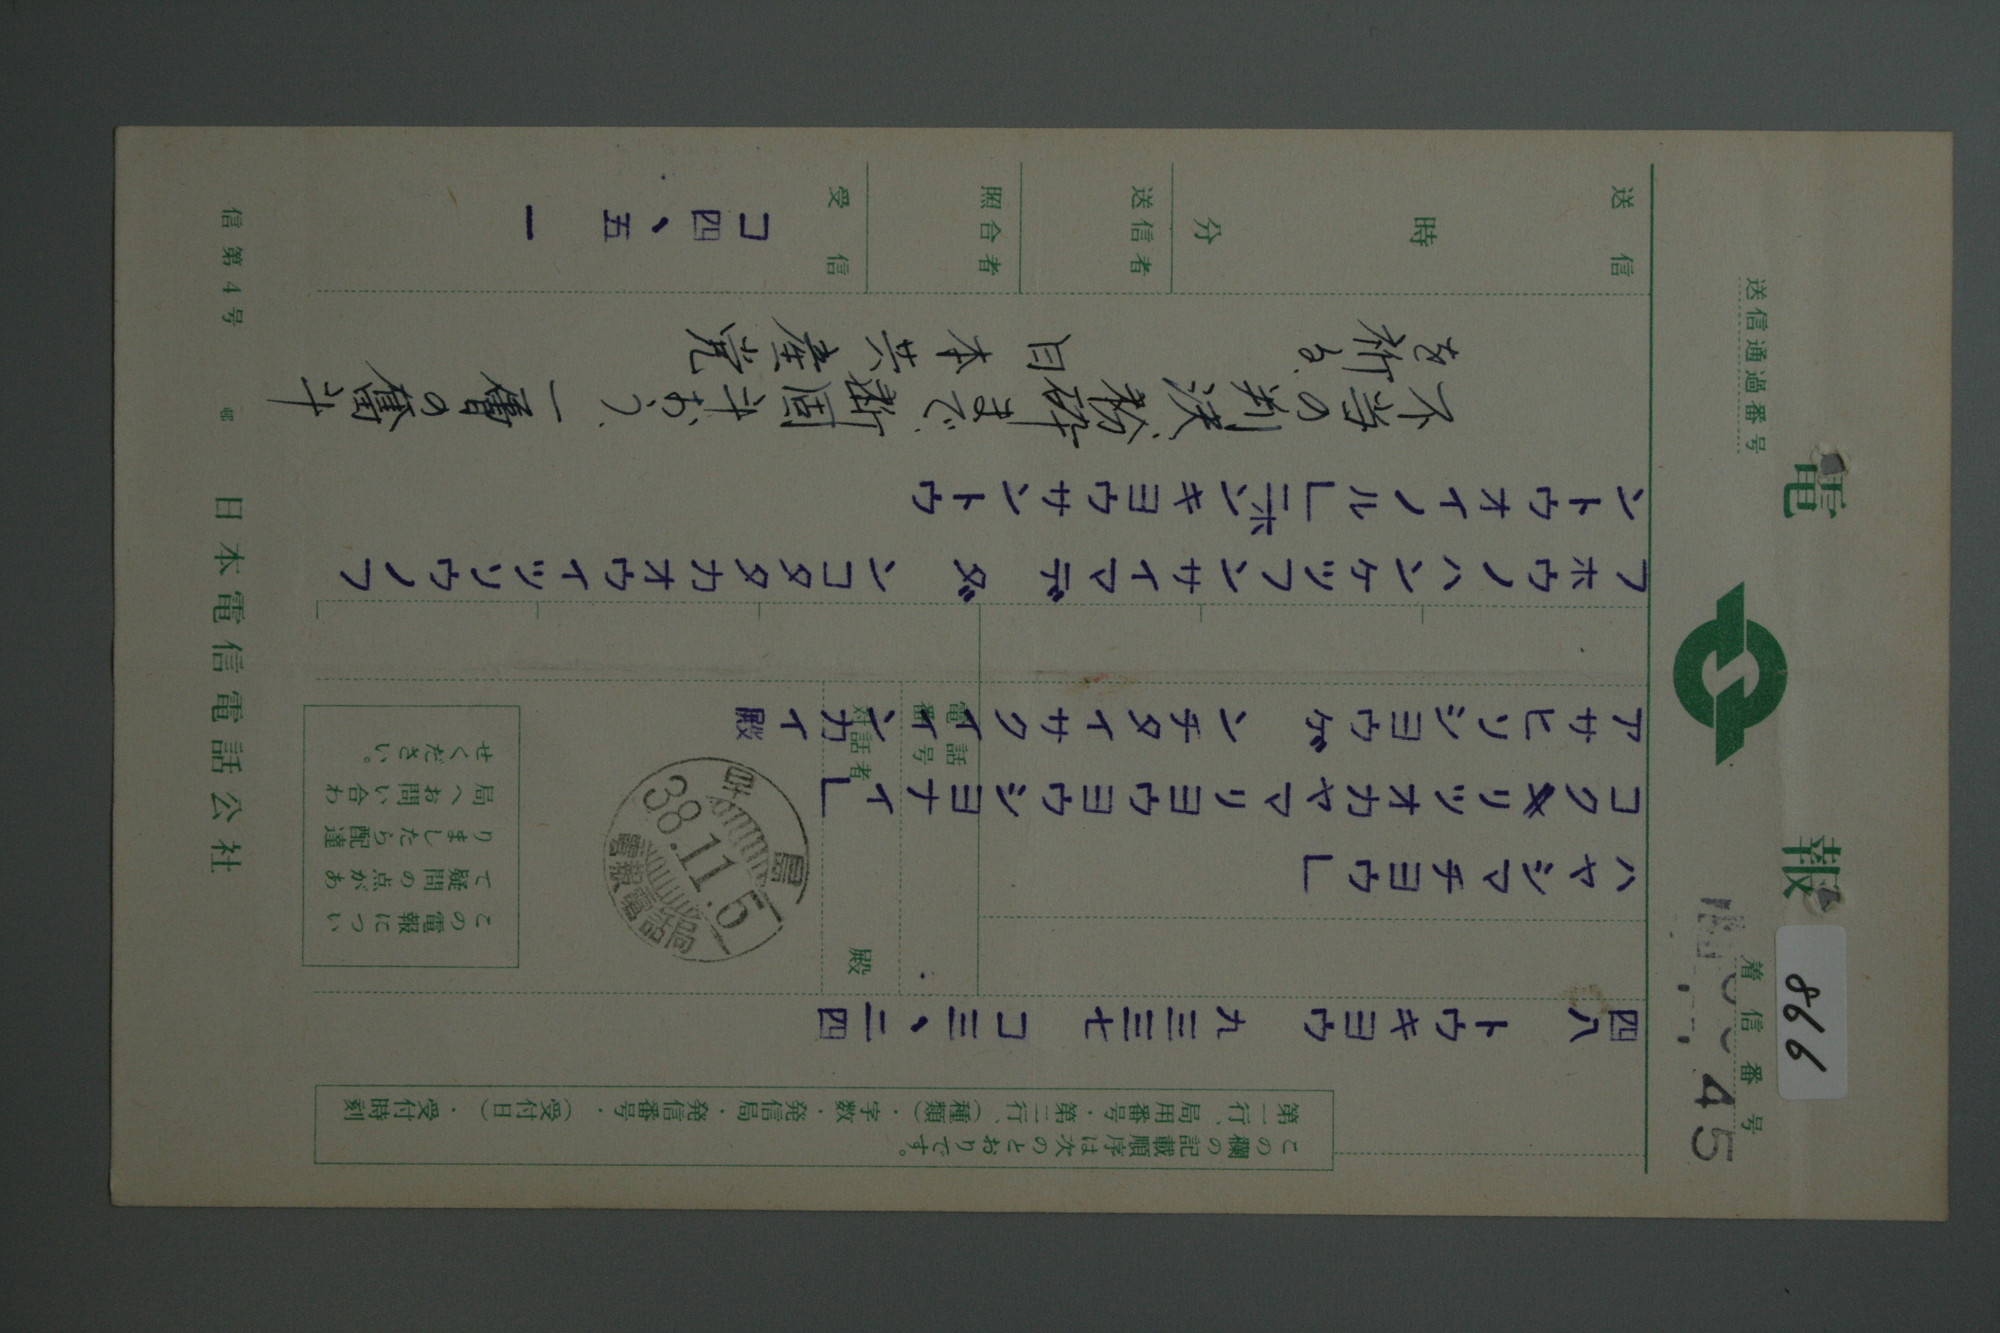 電報
送信通過番号
着信番号
866
45
この欄の記載順序は次のとおりです。
第一行、局用番号・第二行、（種類）・字数・発信局・発信番号・（受付日）・受付時刻
四八 トウキヨウ 九三三七 コ三、二四
ハヤシマチヨウ」
コクリツオカヤマリヨウヨウシヨナイ」
アサヒソシヨウゲンチタイサクイインカイ殿
電話番号
対話者
殿
早島
38.11.5
電報電話局
この電報につい
て疑問の点があ
りましたら配達
局へお問い合わ
せください。
フホウノハンケツフンサイマデ ダンコタタカオウイツソウノフ
ントウオイノル」ニホンキヨウサントウ
不当の判決粉砕まで、断固斗おう、一層の奮斗
を祈る 日本共産党
送信
時
分
送信者
照合者
受信
コ四、五一
信第4号
日本電信電話公社